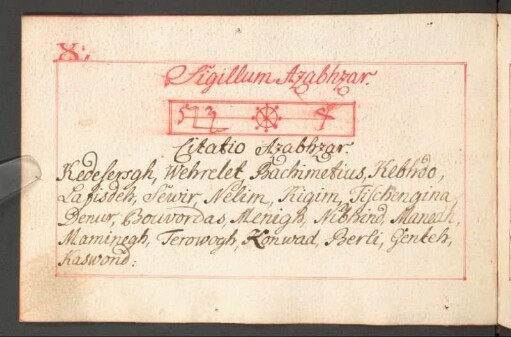 X:
Sigillum Azabhzar.
Citatio Azabhzar.
Kedesersgh, Wehrelet, Bachimetius, Kebhdo,
Lapisdeh, Sewir, Nelim, Kigim, Tischengina
Denur, Bouvordas, Menigh, Nibhind, Maneah,
Maminegh, Terowogh, Konwad, Berli, Genteh,
Kaswond: